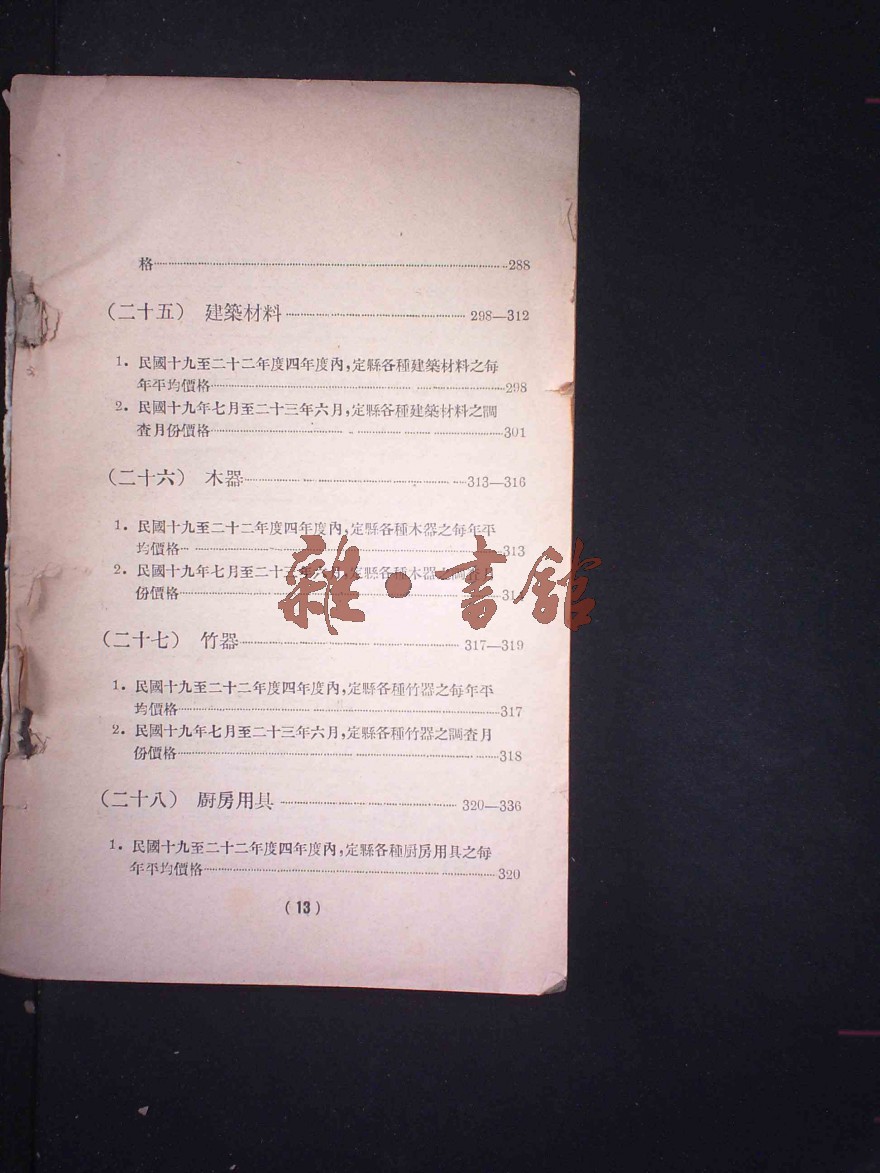 格……288
（二十五） 建築材料……298—312
1. 民國十九至二十二年度四年度內，定縣各種建築材料之每
年平均價格……298
2. 民國十九年七月至二十三年六月，定縣各種建築材料之調
查月份價格……301
（二十六） 木器……313—316
1. 民國十九至二十二年度四年度內，定縣各種木器之每年平
均價格……313
2. 民國十九年七月至二十三年六月，定縣各種木器之調查月
份價格……31
（二十七） 竹器……317—319
1. 民國十九至二十二年度四年度內，定縣各種竹器之每年平
均價格……317
2. 民國十九年七月至二十三年六月，定縣各種竹器之調查月
份價格……318
（二十八） 廚房用具……320—336
1. 民國十九至二十二年度四年度內，定縣各種廚房用具之每
年平均價格……320
(13)
雜・書館